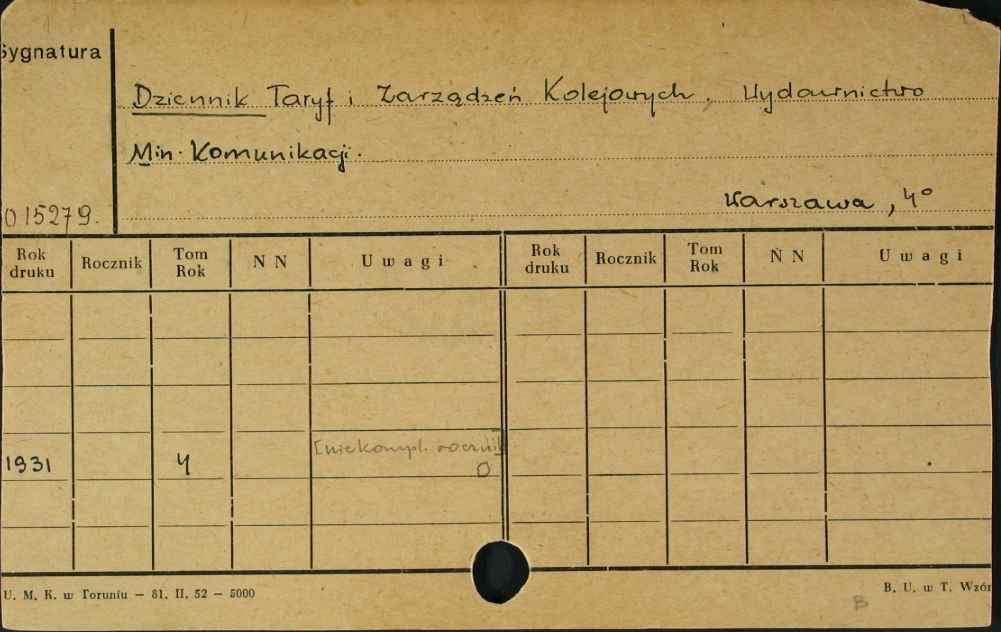 Sygnatura
Dziennik Taryf i Zarządzeń Kolejowych. Wydawnictwo
Min. Komunikacji.
Warszawa, 4°
015279.
Rok druku Rocznik Tom Rok N N Uwagi Rok druku Rocznik Tom Rok N N Uwagi
1931 4 [niekompl. rocznik
O
U. M. K. w Toruniu — 81. II. 52 — 5000
B. U. w T. Wzór
B